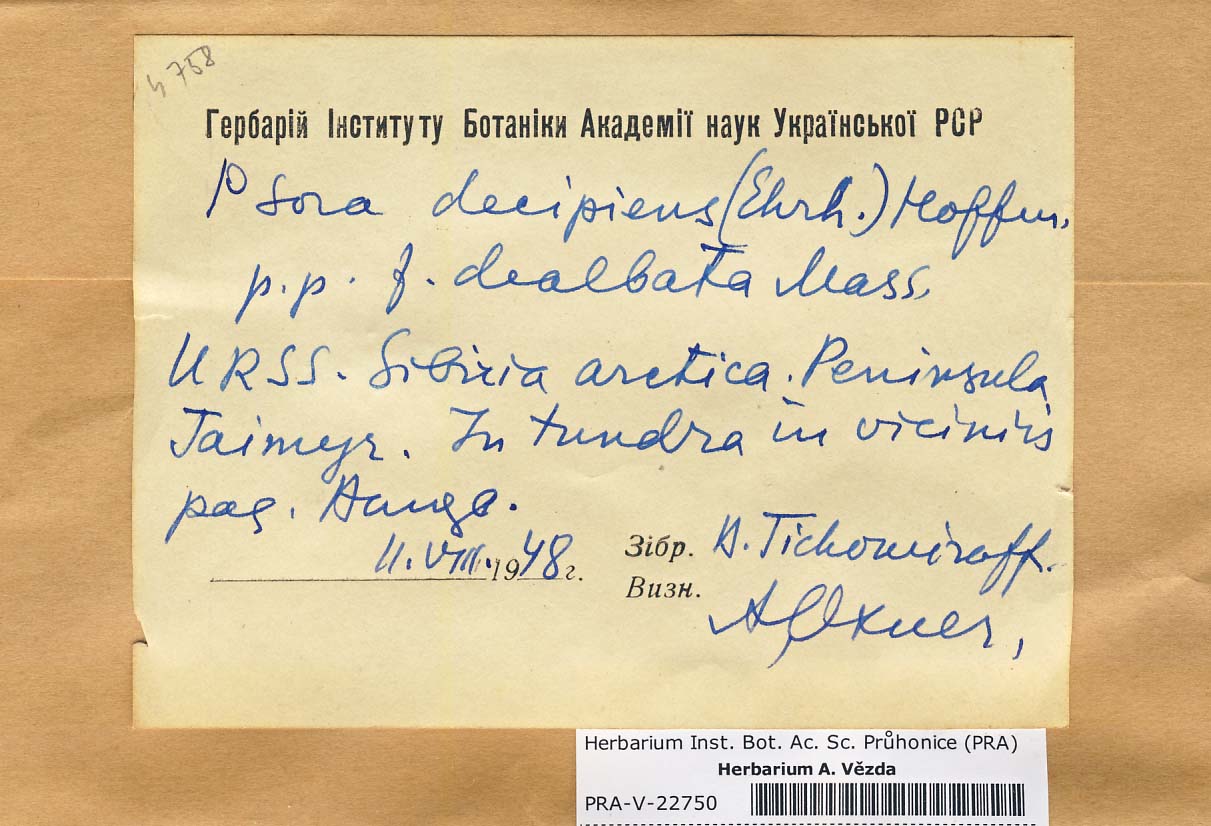 4758
Гербарій Інституту Ботаніки Академії наук Української РСР
Psora decipiens (Ehrh.) Hoffm.
p.p. f. dealbata Mass.
URSS. Sibiria arctica. Peninsula
Taimyr. In tundra in viciniis
pag.
11.VIII.1948г.
Зібр. Tichomiroff.
Визн. A Oxner,
Herbarium Inst. Bot. Ac. Sc. Průhonice (PRA)
Herbarium A. Vězda
PRA-V-22750